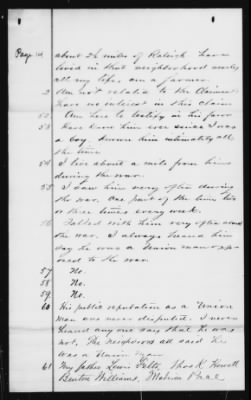 Page 1st
about 2½ miles of Raleigh have
lived in that neighborhood nearly
all my life, am a farmer.
2 Am not related to the Claimant
have no interest in this claim
52 Am here to testify in his favor
53 Have known him ever since I was
a boy. Known him intimately all
the time
54 I live about a mile from him
during the war.
55 I saw him very often during
the war. One part of the time two
or three times every week.
56 Talked with him very often about
the war. I always heard him
say he was a Union man & opp-
osed to the war.
57 No.
58 No.
59 No.
60 His public reputation as a Union
man was never disputed. I never
heard any one say that he was
not. The neighbors all said he
was a Union Man
61 My father Lewis Pool,
Burton Williams,